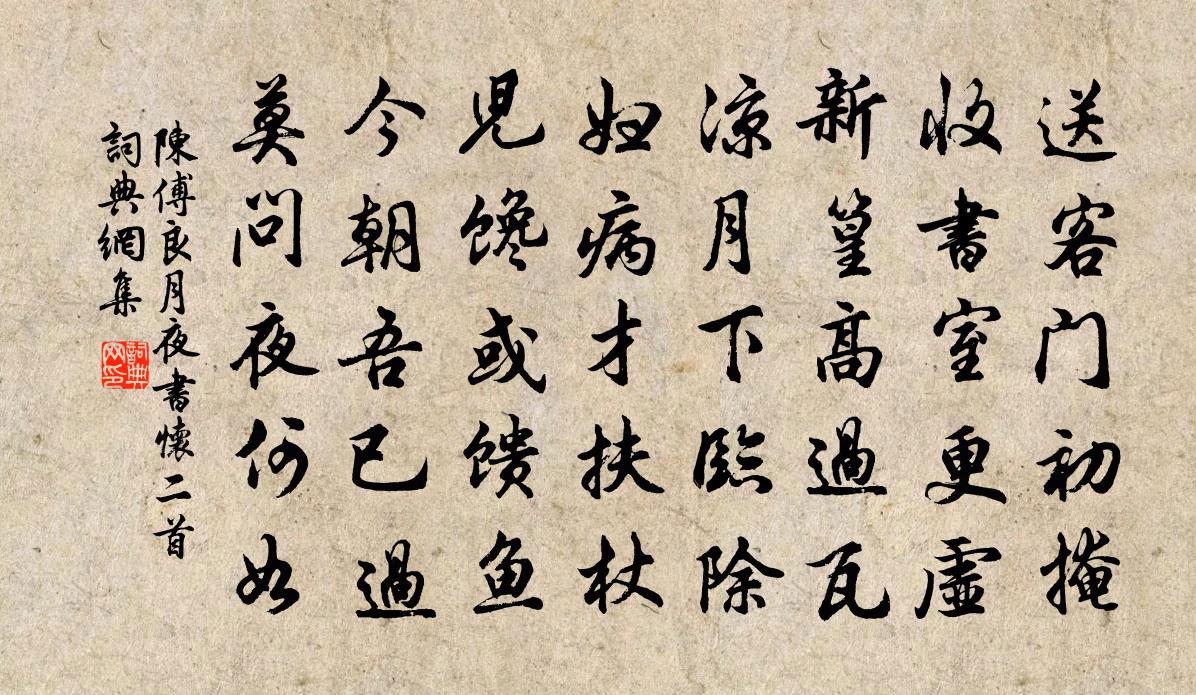 送客门初掩
收書室更虛
新篁高過瓦
凉月下臨除
妇病才扶杖
児馋或馈鱼
今朝吾已過
莫问夜何如
陳傅良月夜書懷二首
詞典網集
詞典网印